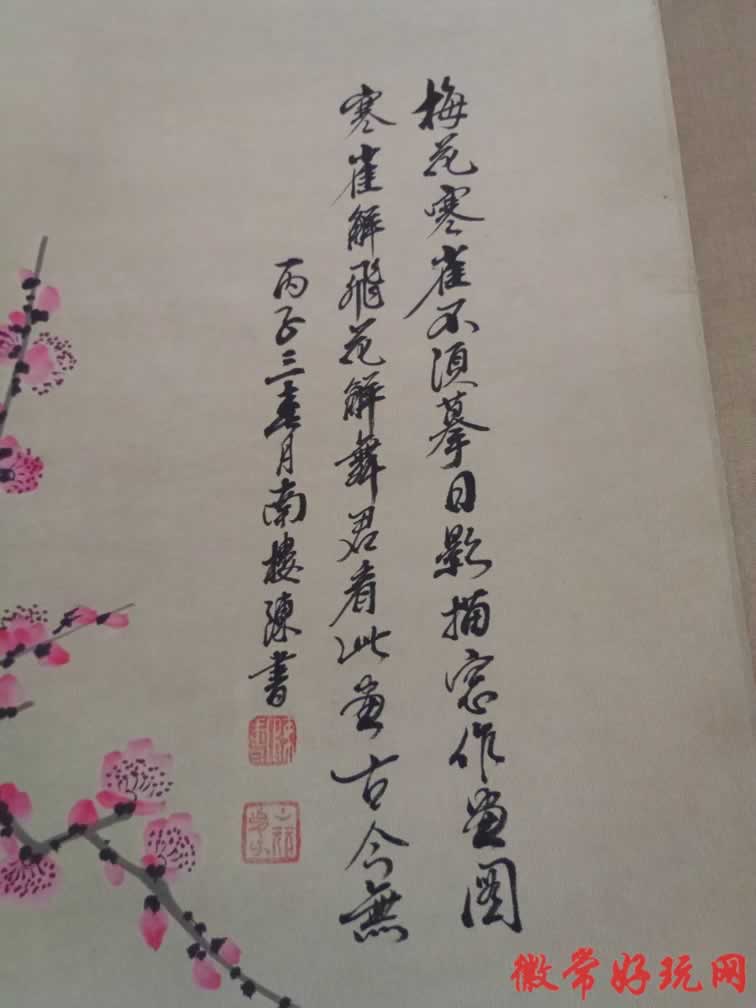 梅花寒雀不須摹日影描窓作畫圖
寒雀解飛花解舞君看此畫古今無
丙子三春月南樓陳書
陳書
徽常好玩网